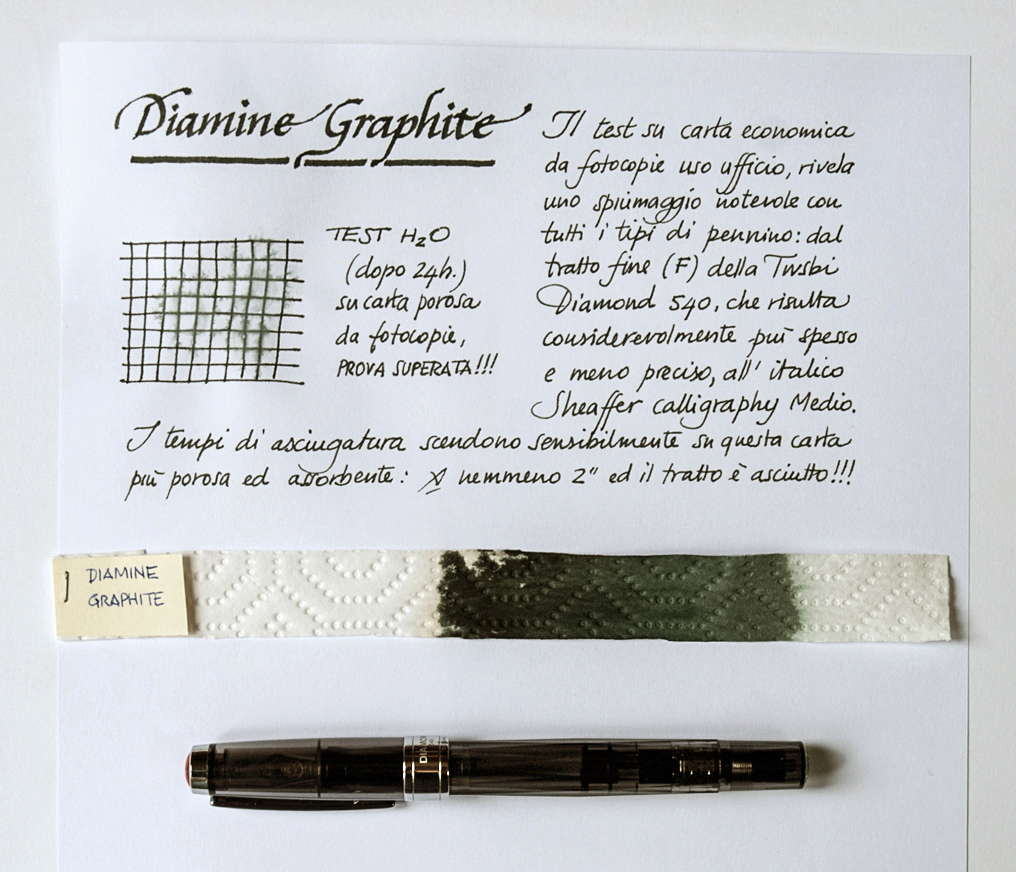 Diamine Graphite
Il test su carta economica
da fotocopie uso ufficio, rivela
uno spiumaggio notevole con
tutti i tipi di pennino: dal
tratto fine (F) della Twsbi
Diamond 540, che risulta
considerevolmente più spesso
e meno preciso, all' italico
Sheaffer calligraphy Medio.
TEST H₂O
(dopo 24h.)
su carta porosa
da fotocopie,
PROVA SUPERATA!!!
I tempi di asciugatura scendono sensibilmente su questa carta
più porosa ed assorbente: nemmeno 2" ed il tratto è asciutto!!!
DIAMINE
GRAPHITE